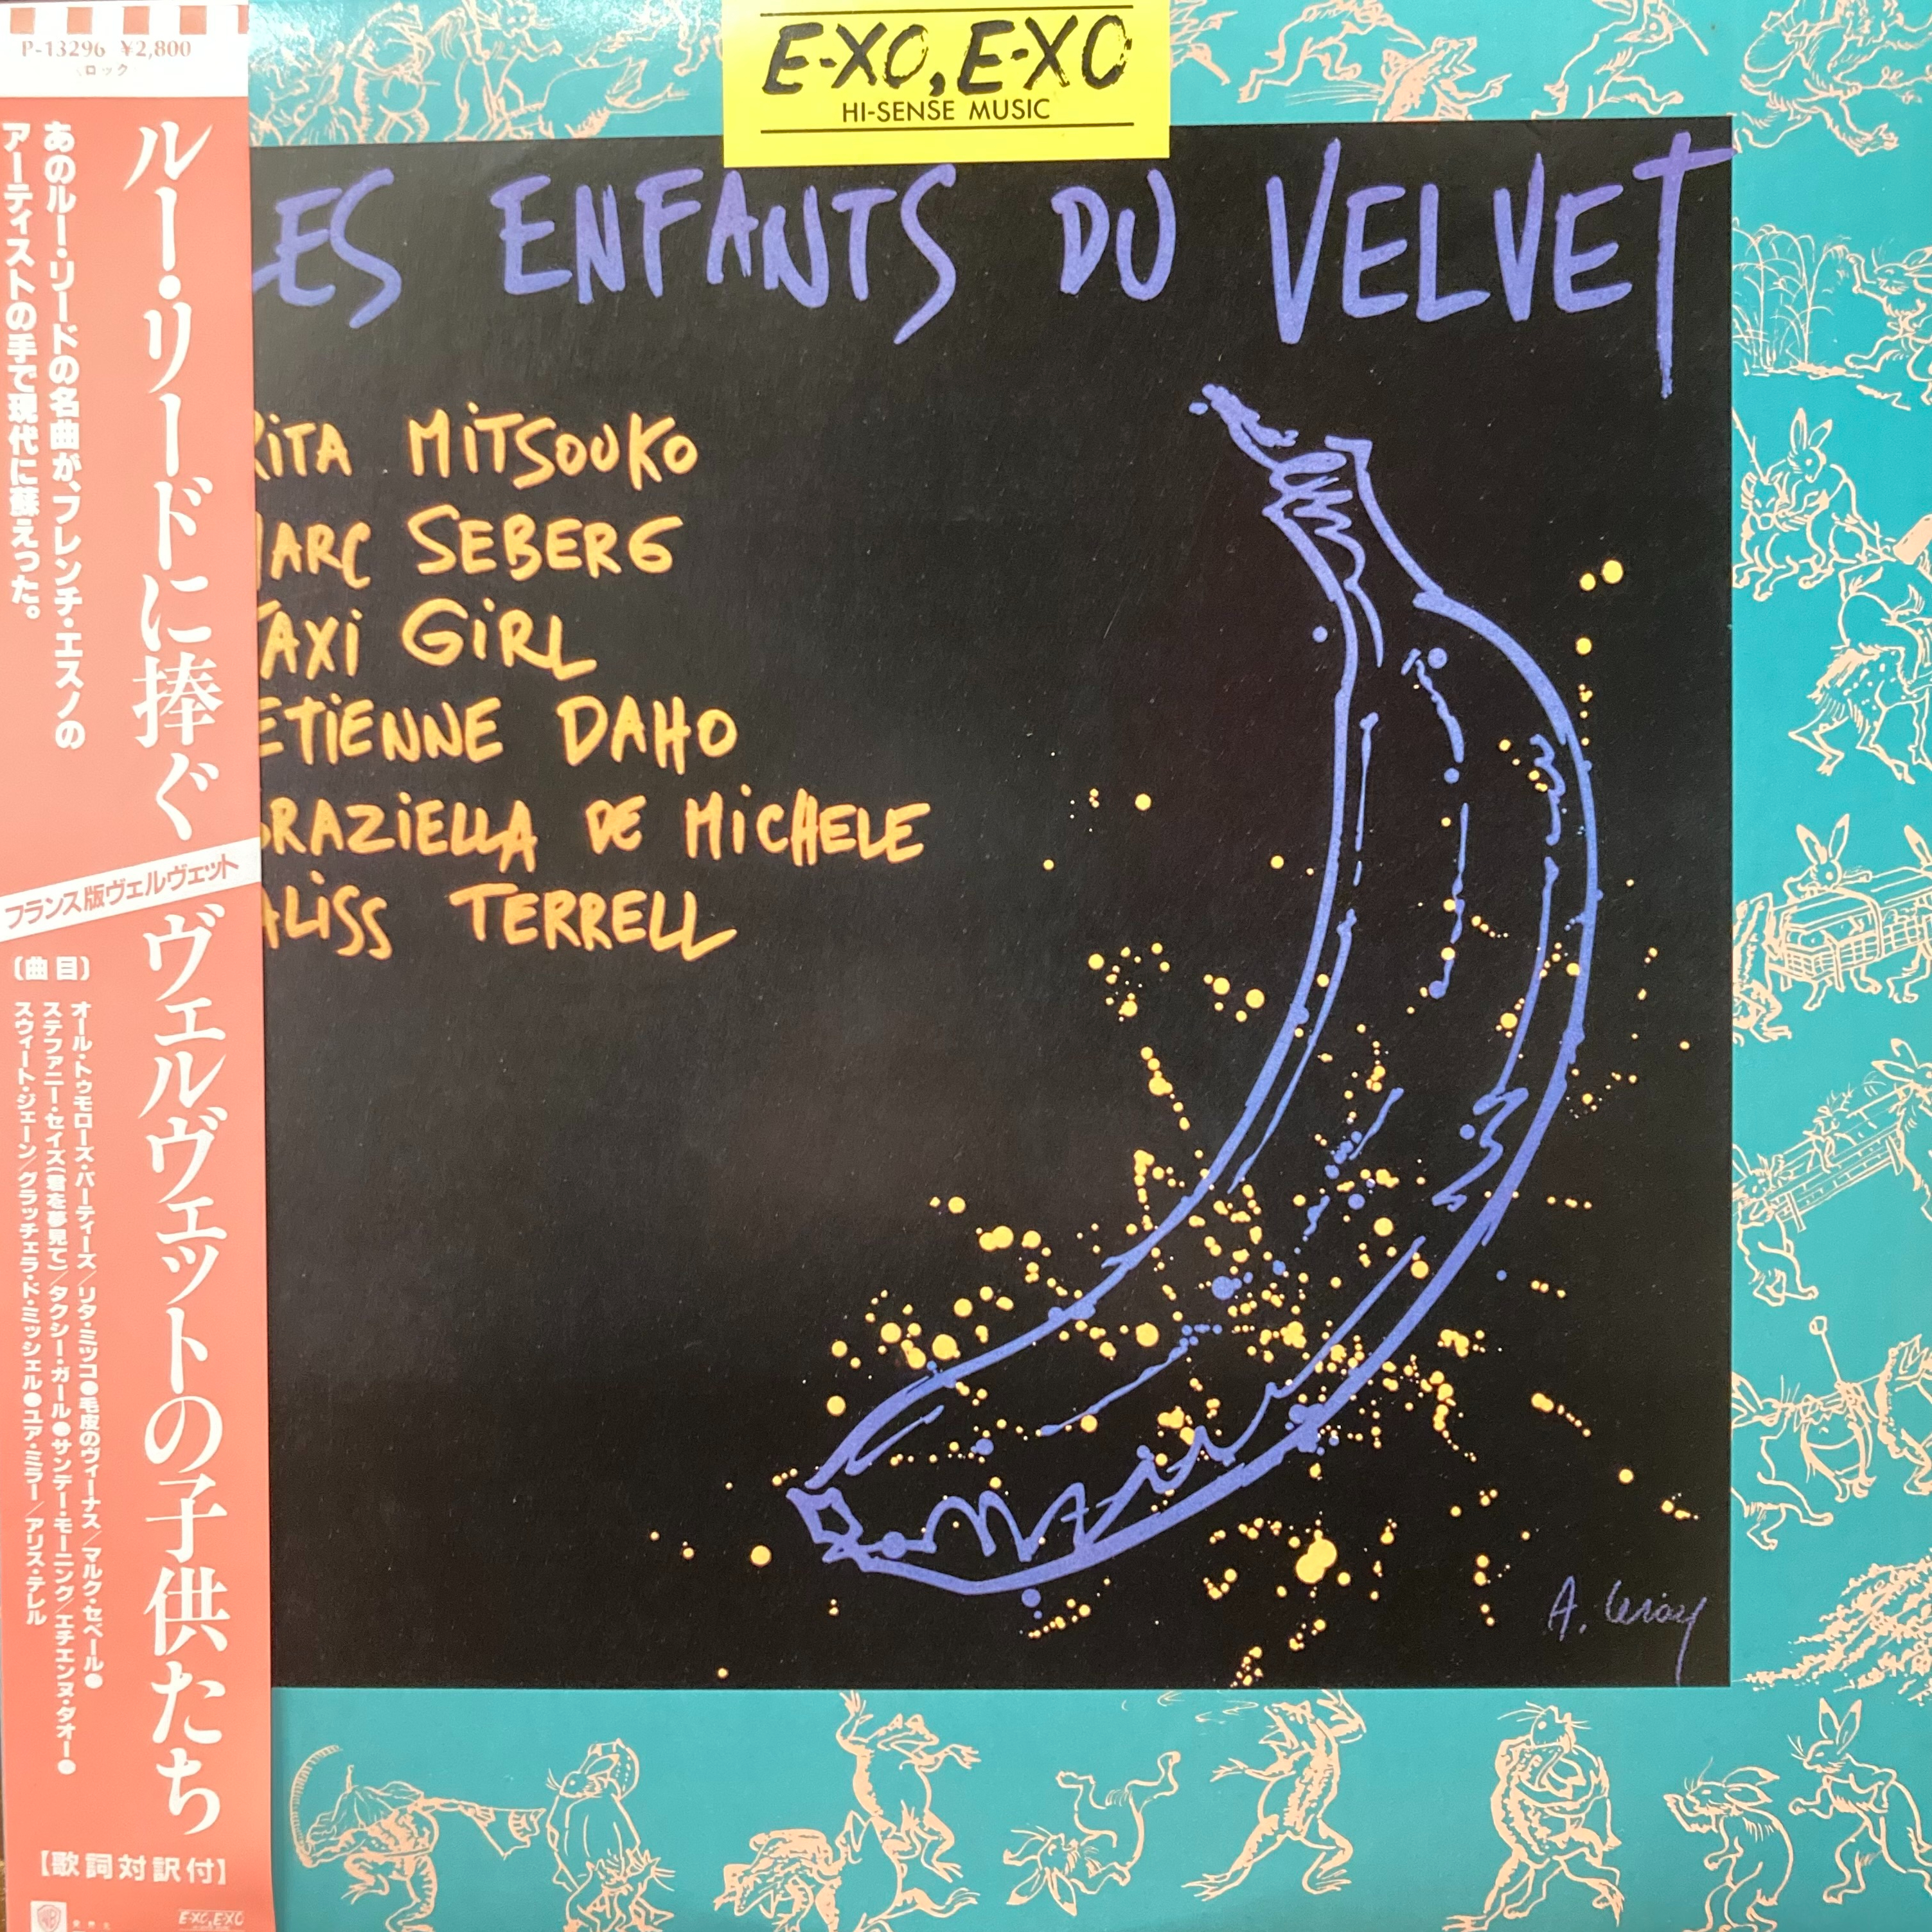 P-13296 ¥2,800
ロック
ルー・リードに捧ぐ
あのルー・リードの名曲が、フレンチ・エスノの
アーティストの手で現代に蘇えった。
フランス版ヴェルヴェット
ヴェルヴェットの子供たち
〔曲目〕
オール・トゥモローズ・パーティーズ/リタ・ミツコ●毛皮のヴィーナス/マルク・セベール●
ステファニー・セイズ(君を夢見て)/タクシー・ガール●サンデー・モーニング/エチエンヌ・ダオー●
スウィート・ジェーン/グラッチェラ・ド・ミッシェル●ユア・ミラー/アリス・テレル
【歌詞対訳付】
E-XO, E-XO
E-XO, E-XO
HI-SENSE MUSIC
ES ENFANTS DU VELVET
RITA MITSOUKO
MARC SEBERG
TAXI GIRL
ETIENNE DAHO
GRAZIELLA DE MICHELE
ALISS TERRELL
A. Leroy